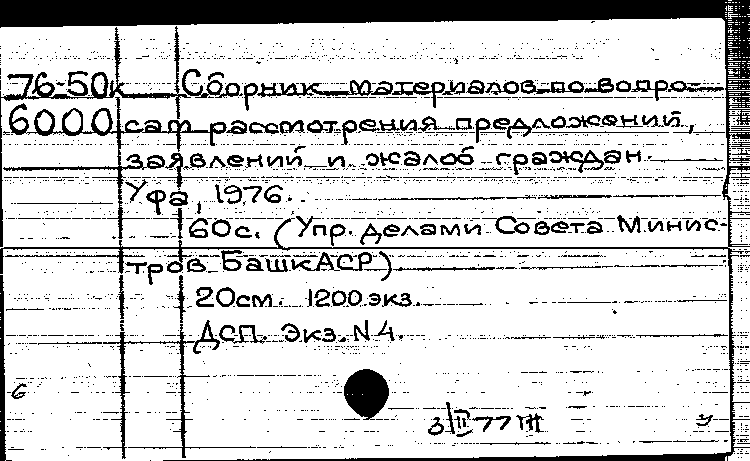 76-50к Сборник материалов по вопро-
6000 сам рассмотрения предложений,
заявлений и жалоб граждан.
Уфа, 1976.
60с. (Упр. делами Совета Минис-
тров БашкАСР).
20см. 1200 экз.
ДСП. Экз. N 4.
3/II 77